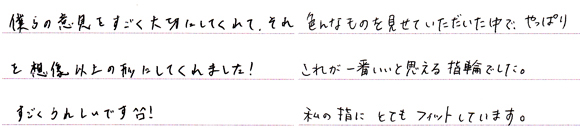 僕らの意見をすごく大切にしてくれて、それ
を想像以上の形にしてくれました!
すごくうれしいです!
色んなものを見せていただいた中で、やっぱり
これが一番いいと思える指輪でした。
私の指にとてもフィットしています。